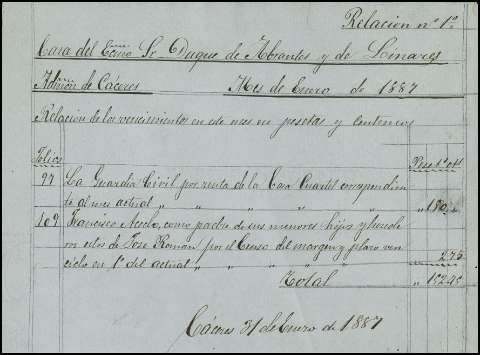 Relacion nº 1º
Casa del Exmo Sr Duque de Abrantes y de Linares
Admon de Cáceres Mes de Enero de 1887
Relacion de los vencimientos en este mes en pesetas y centimos
Folios Pesetas
97 La Guardia Civil por renta de la Casa Cuartel correspondien
te al mes actual " " " " " " 150,
109 Francisco Acedo, como padre de sus menores hijos y herede
ros estos de Jose Roman por el Censo del margen y plazo ven
cido en 1º del actual " " " " " 2.75
Total " 152.75
Cáceres 31 de Enero de 1887